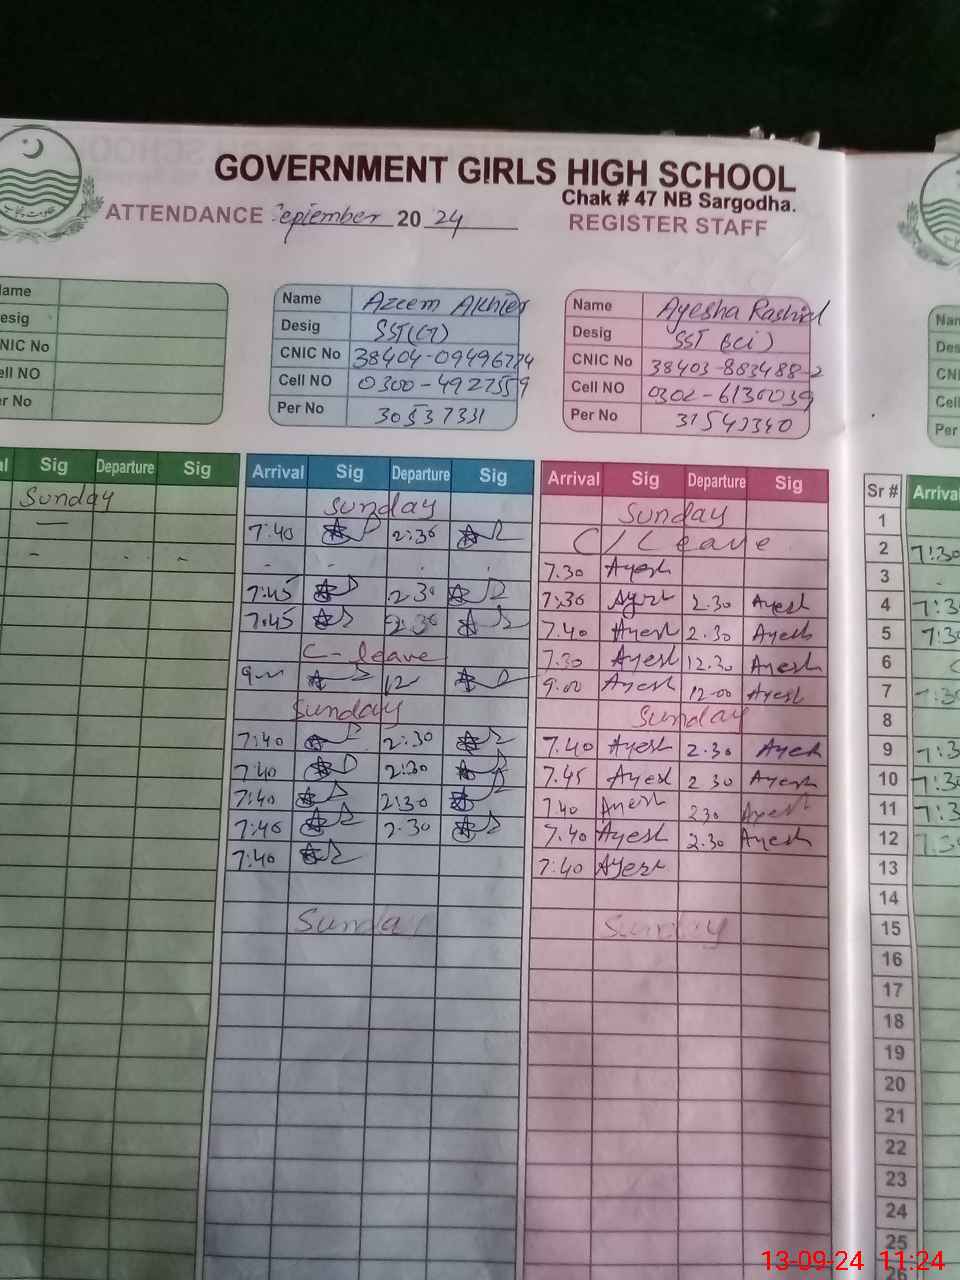 GOVERNMENT GIRLS HIGH SCHOOL
Chak # 47 NB Sargodha.
ATTENDANCE September 20 24 REGISTER STAFF
ame
esig
NIC No
ell NO
er No
Name Azeem Akhter
Desig SST(CT)
CNIC No
Cell NO 0300-4927559
Per No 30537331
Name Ayesha Rashid
Desig SST Sci)
CNIC No 38403-863488-2
Cell NO 0302-6130039
Per No 31542340
Nan
Des
CNI
Cell
Per
al Sig Departure Sig Arrival Sig Departure Sig Arrival Sig Departure Sig Sr # Arrival
Sunday Sunday Sunday 1
— 7:40 2:30 C/Leave 2 7:30
- - . - - . . 7.30 Ayesh 3 -
7:45 2.30 7:30 2.30 Ayesh 4 7:3
7:45 2:30 7.40 Ayesh 2.30 Ayesh 5 7:3
C-leave 7.30 Ayesh 12.30 Ayesh 6
9 12 9:00 Ayesh 12-00 Ayesh 7 7:30
Sunday Sunday 8
7:40 2:30 7.40 Ayesh 2.30 Ayesh 9 7:3
7:40 2:30 7.45 Ayesh 2 30 Ayesh 10 7:3
7:40 2:30 7.40 Ayesh 230 Ayesh 11 7:3
7:40 2.30 7.40 Ayesh 2.30 Ayesh 12 7.3
7:40 7:40 Ayesh 13
14
Sunday Sunday 15
16
17
18
19
20
21
22
23
24
25
26
13-09-24 11:24